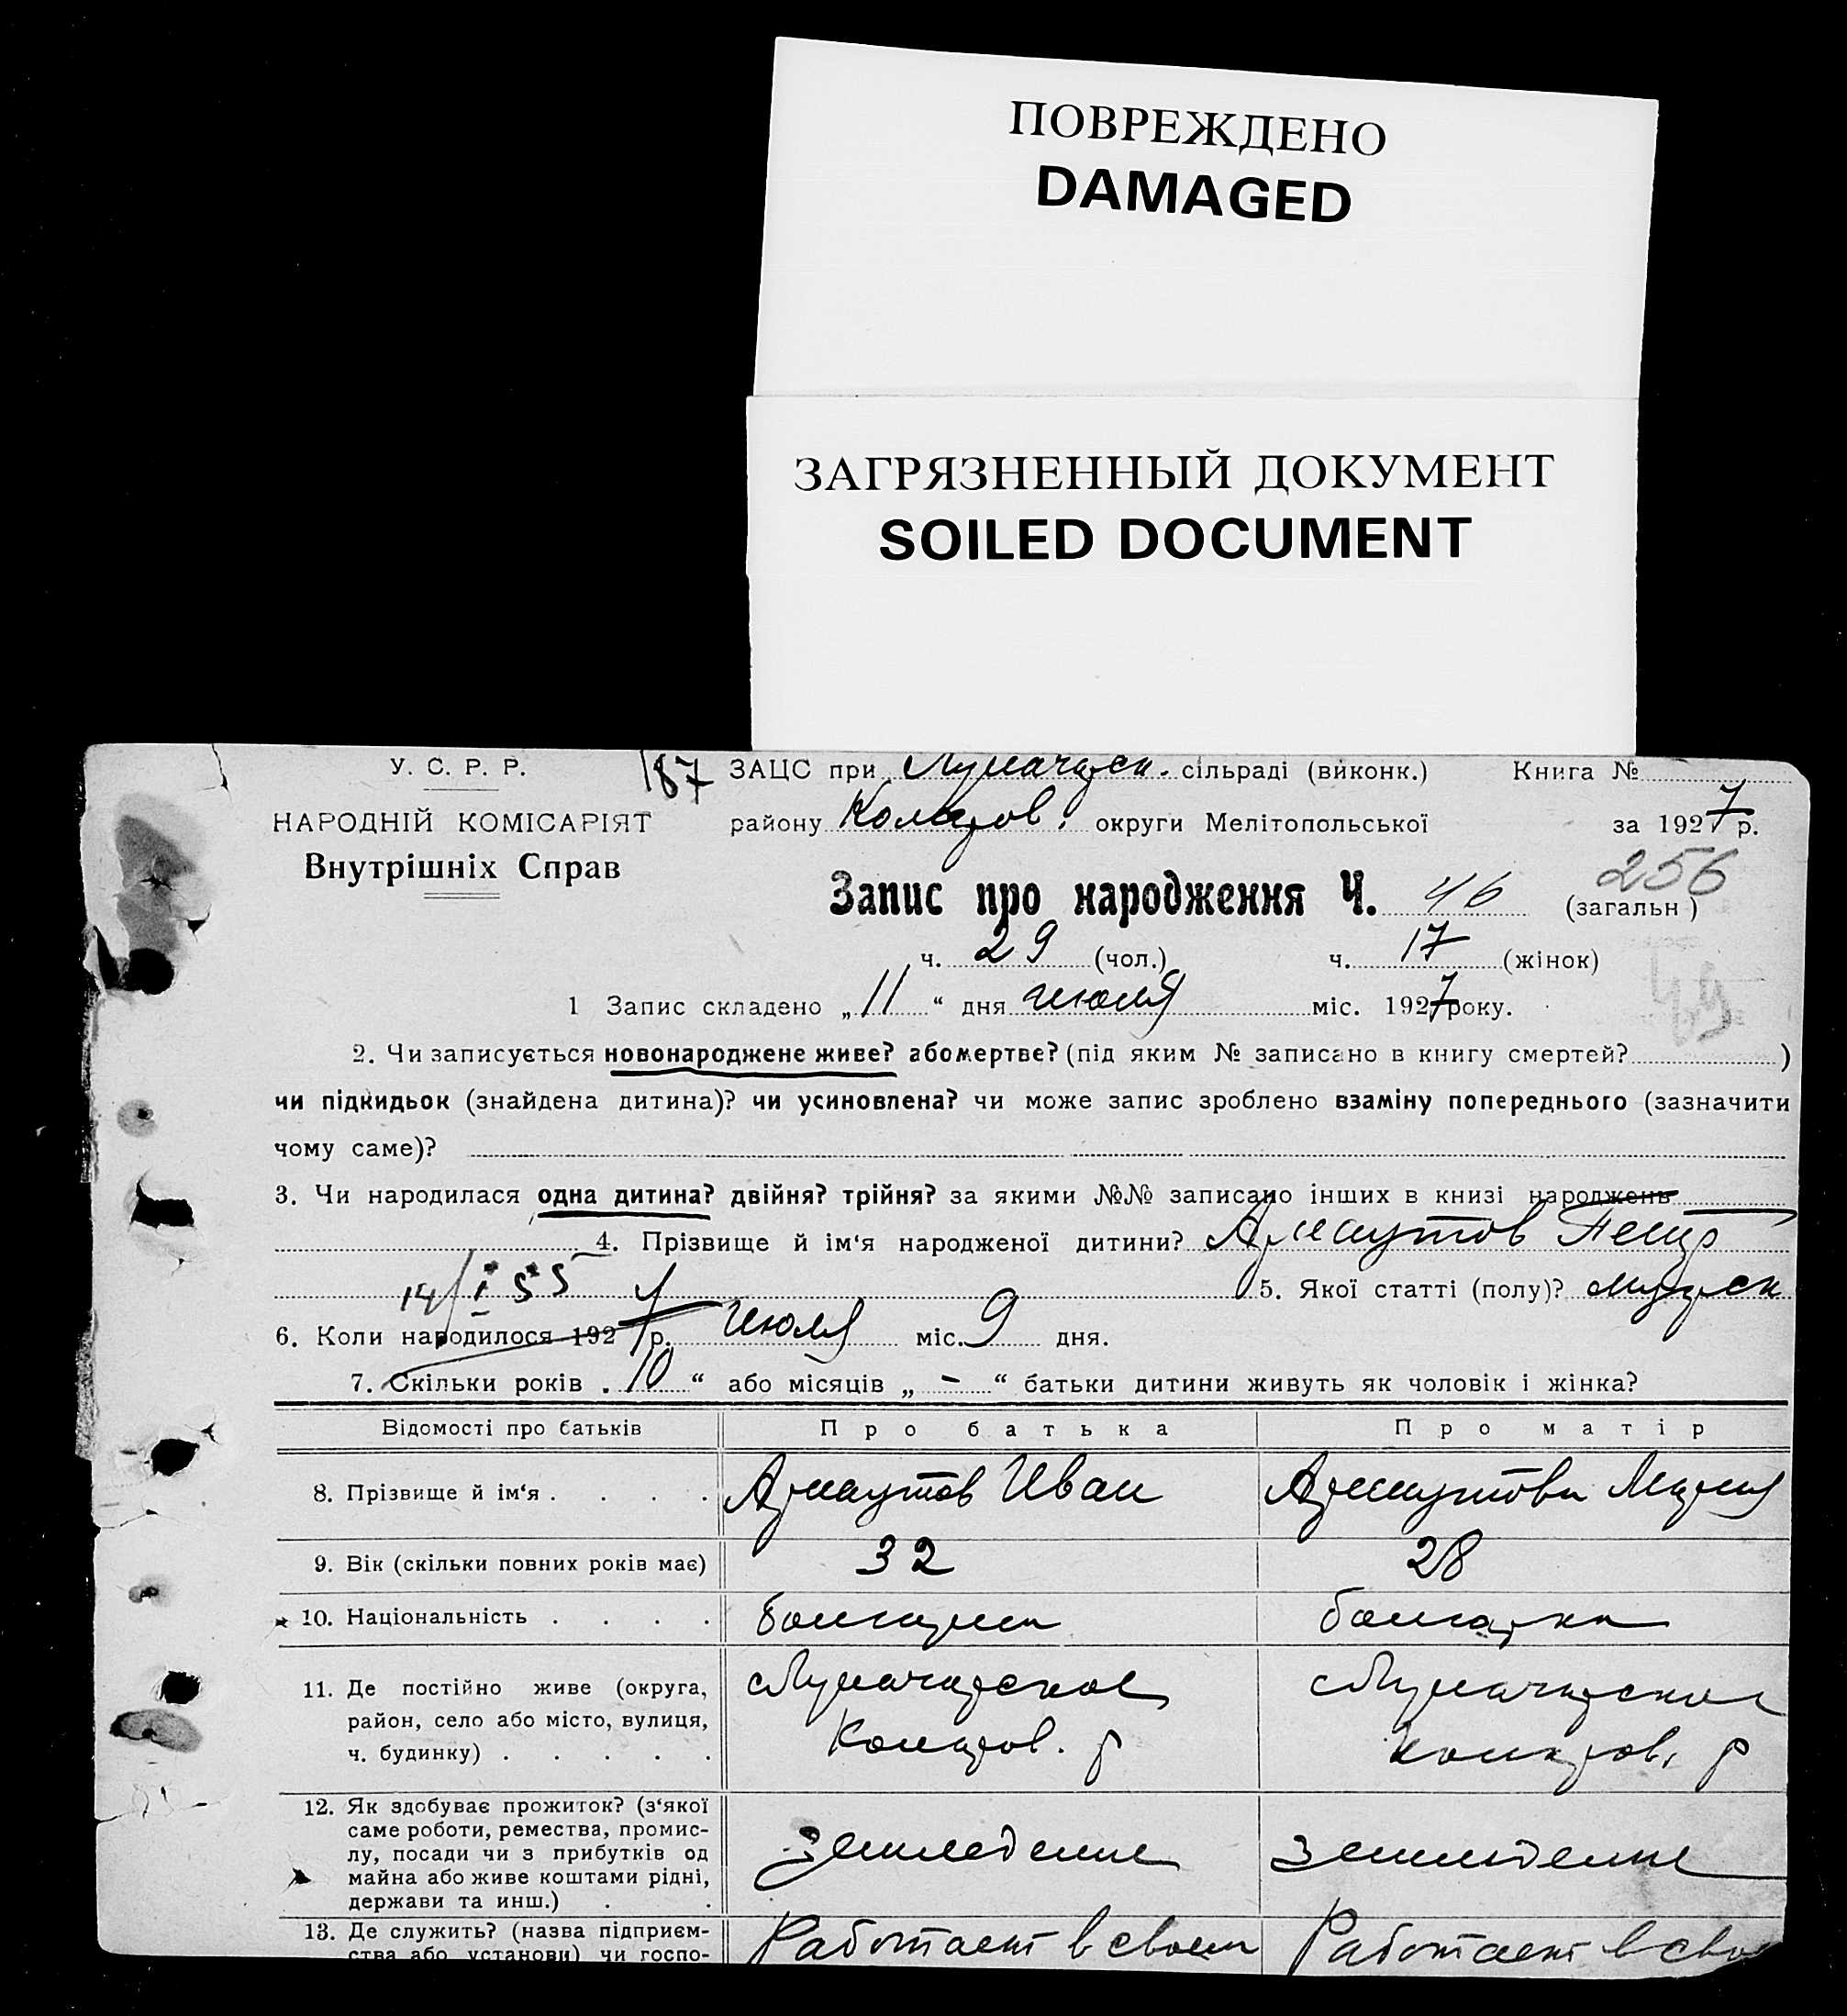 ПОВРЕЖДЕНО
DAMAGED
ЗАГРЯЗНЕННЫЙ ДОКУМЕНТ
SOILED DOCUMENT
У. С. Р. Р. 187 ЗАЦС при Луначарск. сільраді (виконк.) Книга №
НАРОДНІЙ КОМІСАРІЯТ району Коларов. округи Мелітопольської за 1927 р.
Внутрішніх Справ
256
Запис про народження Ч. 46 (загальн)
ч. 29 (чол.) ч. 17 (жінок)
1 Запис складено „11“ дня июля міс. 1927 року.
2. Чи записується новонароджене живе? або мертве? (під яким № записано в книгу смертей? )
чи підкидьок (знайдена дитина)? чи усиновлена? чи може запис зроблено взаміну попереднього (зазначити
чому саме)?
3. Чи народилася одна дитина? двійня? трійня? за якими №№ записано інших в книзі народжень
4. Прізвище й ім‘я народженої дитини? Арнаутов Петр
14/I 55 5. Якої статті (полу)? мужск
6. Коли народилося 1927 р. Июля міс. 9 дня.
7. Скільки років „10“ або місяців „-“ батьки дитини живуть як чоловік і жінка?
Відомості про батьків Про батька Про матір
8. Прізвище й ім‘я . . . . Арнаутов Иван Арнаутова Мария
9. Вік (скільки повних років має) 32 28
10. Національність . . . . болгарин болгарка
11. Де постійно живе (округа, Луначарское
район, село або місто, вулиця,
ч. будинку) . . . . . Коларов. р Коларов. р
12. Як здобуває прожиток? (з‘якої
саме роботи, ремества, промис-
лу, посади чи з прибутків од земледелие земледелие
майна або живе коштами рідні,
держави та инш.) . .
13. Де служить? (назва підприєм- Работает в своем Работает в
ства або установи) чи госпо-